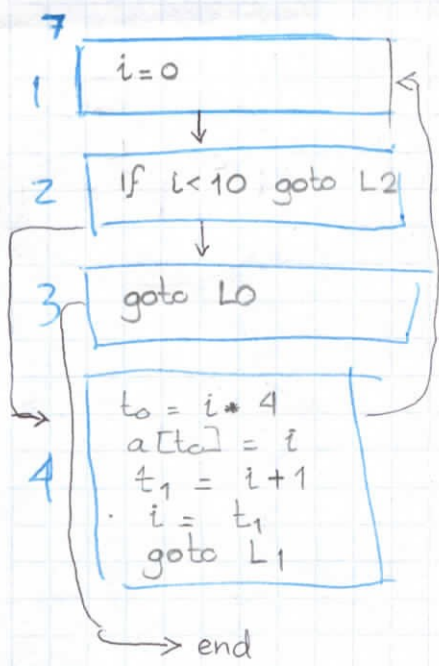 7
1
i = 0
2
If i < 10 goto L2
3
goto L0
4
t₀ = i * 4
a[t₀] = i
t₁ = i + 1
i = t₁
goto L₁
end